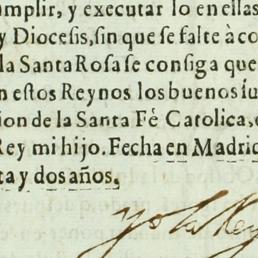 umplir, y executar lo en ellas
y Diocesis, sin que se falte à co
la Santa Rosa se consiga que
n estos Reynos los buenos su
ion de la Santa Fé Catolica, e
Rey mi hijo. Fecha en Madrid
ta y dos años,
yo la Rey